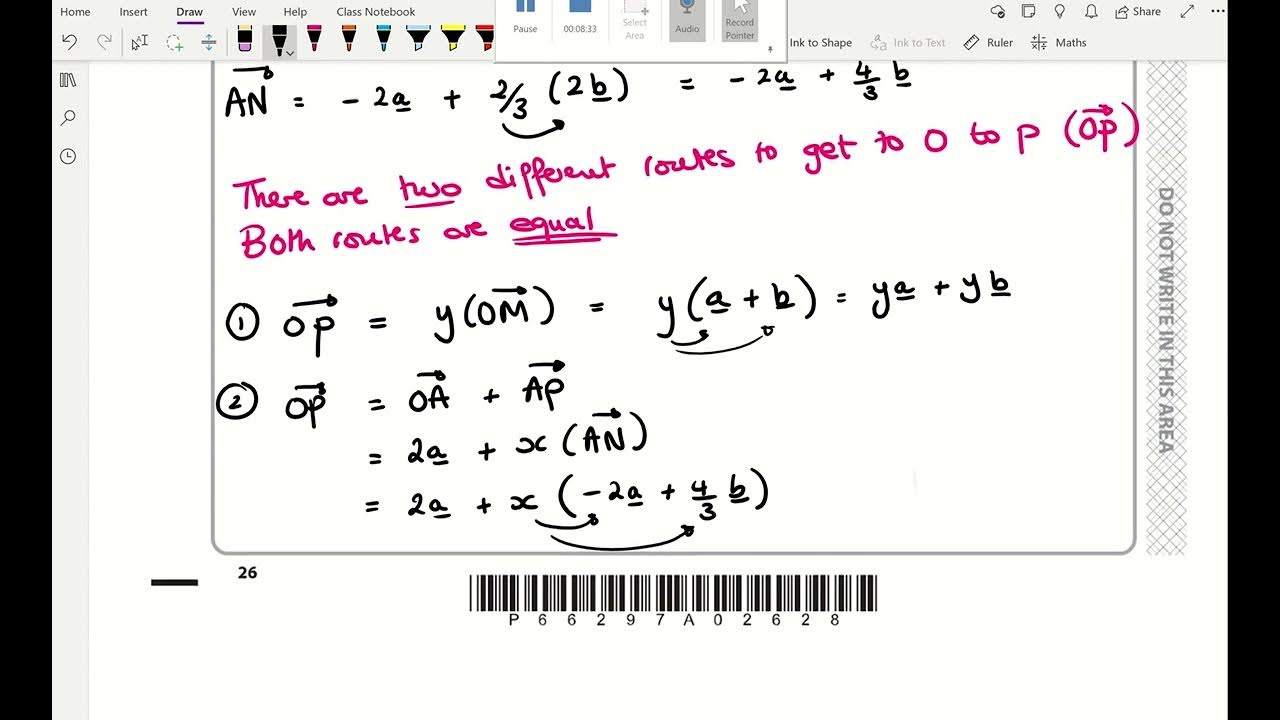 Home Insert Draw View Help Class Notebook Share
Pause 00:08:33 Select Area Audio Record Pointer Ink to Shape Ink to Text Ruler Maths
AN = - 2a + 2/3 (2b) = - 2a + 4/3 b
There are two different routes to get to O to P (OP)
Both routes are equal
① OP = y(OM) = y(a + b) = ya + yb
② OP = OA + AP
= 2a + x(AN)
= 2a + x(-2a + 4/3 b)
DO NOT WRITE IN THIS AREA
26
P66297A02628